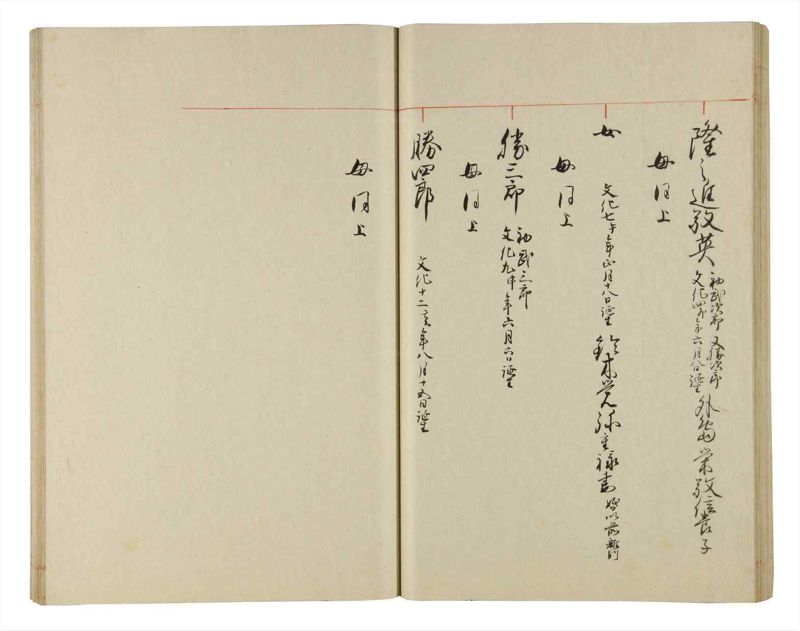 隆之進敬英
初武次郎 又勝次郎
文化四卯年六月 日誕生
養子
母同上
女
文化七午年正月十八日誕生
鈴木 弥重禄妻
母同上
勝三郎
初武三郎
文化九申年六月六日誕生
母同上
勝四郎
文化十二亥年八月十五日誕生
母同上